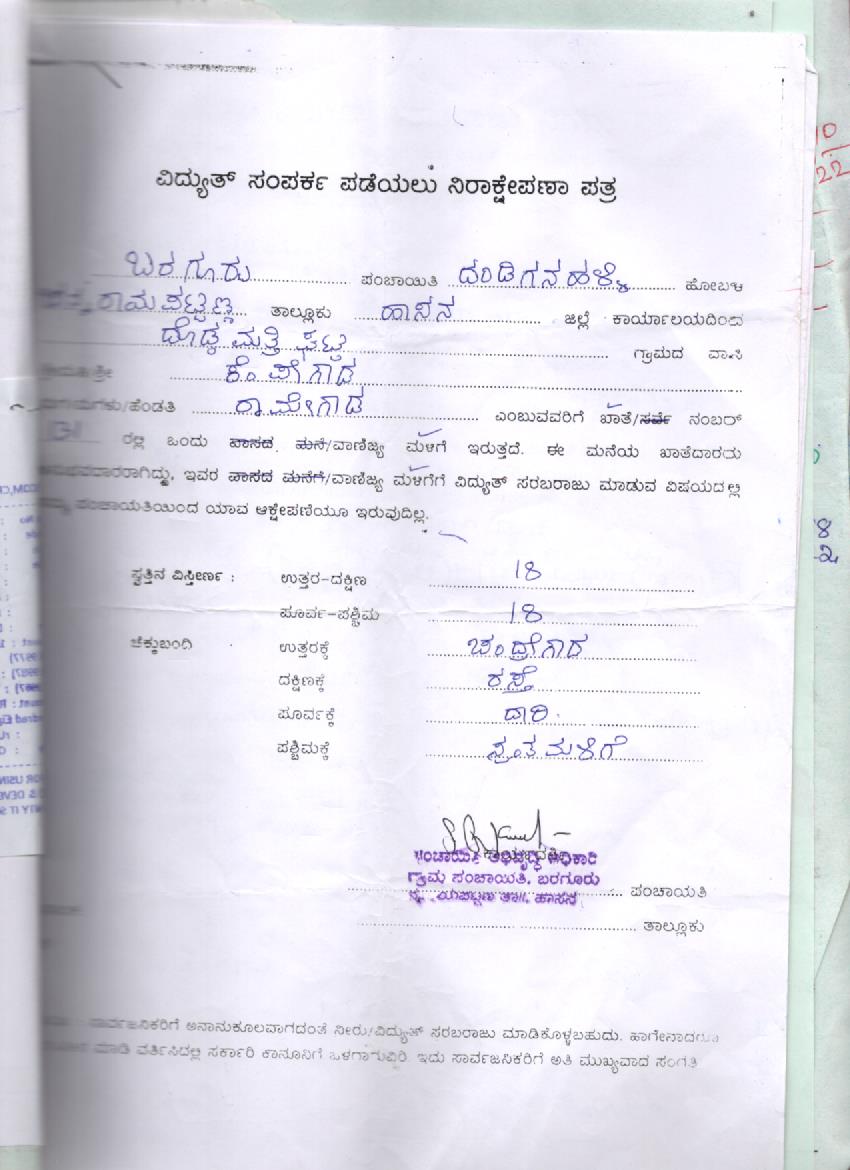 ವಿದ್ಯುತ್ ಸಂಪರ್ಕ ಪಡೆಯಲು ನಿರಾಕ್ಷೇಪಣಾ ಪತ್ರ
ಬರಗೂರು ಪಂಚಾಯಿತಿ ದಂಡಿಗನಹಳ್ಳಿ ಹೋಬಳಿ
ತಾಲ್ಲೂಕು ಹಾಸನ ಜಿಲ್ಲೆ ಕಾರ್ಯಾಲಯದಿಂದ
ದೊಡ್ಡ ಮತ್ತಿ ಘಟ್ಟ ಗ್ರಾಮದ ವಾಸಿ
ಕೆಂಪೇಗೌಡ
/ಹೆಂಡತಿ ರಾಮೇಗೌಡ ಎಂಬುವವರಿಗೆ ಖಾತೆ/ಸರ್ವೆ ನಂಬರ್
131 ರಲ್ಲಿ ಒಂದು ವಾಸದ ಮನೆ/ವಾಣಿಜ್ಯ ಮಳಿಗೆ ಇರುತ್ತದೆ. ಈ ಮನೆಯ ಖಾತೆದಾರರು
ಅನುಭವದಾರರಾಗಿದ್ದು, ಇವರ ವಾಸದ ಮನೆಗೆ/ವಾಣಿಜ್ಯ ಮಳಿಗೆಗೆ ವಿದ್ಯುತ್ ಸರಬರಾಜು ಮಾಡುವ ವಿಷಯದಲ್ಲಿ
ಪಂಚಾಯತಿಯಿಂದ ಯಾವ ಆಕ್ಷೇಪಣೆಯೂ ಇರುವುದಿಲ್ಲ.
ಸ್ವತ್ತಿನ ವಿಸ್ತೀರ್ಣ : ಉತ್ತರ-ದಕ್ಷಿಣ 18
ಪೂರ್ವ-ಪಶ್ಚಿಮ 18
ಚೆಕ್ಕುಬಂದಿ ಉತ್ತರಕ್ಕೆ ಚಂದ್ರೇಗೌಡ
ದಕ್ಷಿಣಕ್ಕೆ ರಸ್ತೆ
ಪೂರ್ವಕ್ಕೆ ದಾರಿ.
ಪಶ್ಚಿಮಕ್ಕೆ ಸ್ವಂತ ಮಳಿಗೆ
ಪಂಚಾಯಿತಿ ಅಭಿವೃದ್ಧಿ ಅಧಿಕಾರಿ
ಗ್ರಾಮ ಪಂಚಾಯಿತಿ, ಬರಗೂರು
ಪಂಚಾಯತಿ
ತಾ||, ಹಾಸನ
ತಾಲ್ಲೂಕು
ಸಾರ್ವಜನಿಕರಿಗೆ ಅನಾನುಕೂಲವಾಗದಂತೆ ನೀರು/ವಿದ್ಯುತ್ ಸರಬರಾಜು ಮಾಡಿಕೊಳ್ಳಬಹುದು. ಹಾಗೇನಾದರೂ
ಮಾಡಿ ವರ್ತಿಸಿದಲ್ಲಿ ಸರ್ಕಾರಿ ಕಾನೂನಿಗೆ ಒಳಗಾಗುವಿರಿ. ಇದು ಸಾರ್ವಜನಿಕರಿಗೆ ಅತಿ ಮುಖ್ಯವಾದ ಸಂಗತಿ